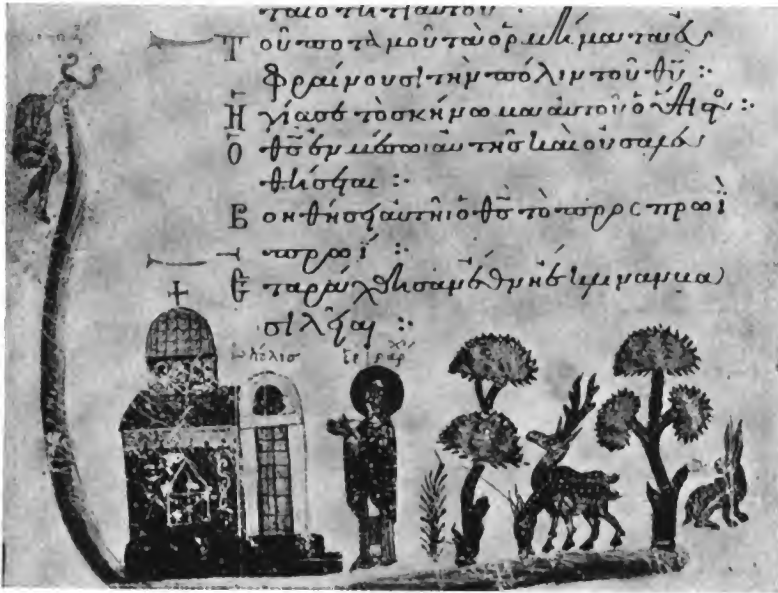 ταιότητι αὐτοῦ :
Τοῦ ποταμοῦ τὰ ὁρμήματα εὐ
φραίνουσι τὴν πόλιν τοῦ θυ :·
Ἡγίασε τὸ σκήνωμα αὐτοῦ ὁ
Ὁ θς ἐν μέσω αὐτῆς καὶ οὐ σαλευ
θήσεται :·
Βοηθήσει αὐτῆ ὁ θς τὸ πρὸς πρωῒ
πρωΐ :·
Ἐταράχθησαν ἔθνη ἔκλιναν βα
σιλεῖαι :·
πόλισ